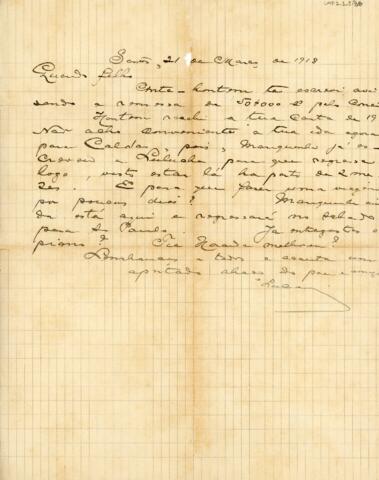 Santos, 21 de Março de 1918
Querido filho
Ante-hontem te escrevi avi-
sando a remessa de 50$000 pelo
Hontem recebi a tua carta de 19
Não acho conveniente a tua ida agora
para Caldas, pois, já es-
creveu a para que regresse
logo, visto estar lá ha perto de 2 me-
zes. E para que fazer uma viagem
por poucos dias? ain-
da está aqui e regressará no sabado
para S. Paulo. Já entregastes o
piano? melhorou?
Lembranças a todos e acceita um
apertado abraço do pae e amigo